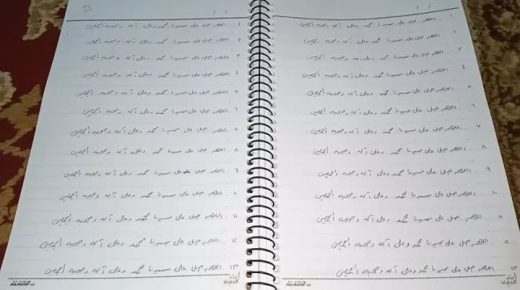 ١ . اللهم صل على سيدنا محمد وعلى آله وصحبه أجمعين
٢ . اللهم صل على سيدنا محمد وعلى آله وصحبه أجمعين
٣ . اللهم صل على سيدنا محمد وعلى آله وصحبه أجمعين
٤ . اللهم صل على سيدنا محمد وعلى آله وصحبه أجمعين
٥ . اللهم صل على سيدنا محمد وعلى آله وصحبه أجمعين
٦ . اللهم صل على سيدنا محمد وعلى آله وصحبه أجمعين
٧ . اللهم صل على سيدنا محمد وعلى آله وصحبه أجمعين
٨ . اللهم صل على سيدنا محمد وعلى آله وصحبه أجمعين
٩ . اللهم صل على سيدنا محمد وعلى آله وصحبه أجمعين
١٠ . اللهم صل على سيدنا محمد وعلى آله وصحبه أجمعين
١١ . اللهم صل على سيدنا محمد وعلى آله وصحبه أجمعين
١٢ . اللهم صل على سيدنا محمد وعلى آله وصحبه أجمعين
١٣ . اللهم صل على سيدنا محمد وعلى آله وصحبه أجمعين
١ . اللهم صل على سيدنا محمد وعلى آله وصحبه أجمعين
٢ . اللهم صل على سيدنا محمد وعلى آله وصحبه أجمعين
٣ . اللهم صل على سيدنا محمد وعلى آله وصحبه أجمعين
٤ . اللهم صل على سيدنا محمد وعلى آله وصحبه أجمعين
٥ . اللهم صل على سيدنا محمد وعلى آله وصحبه أجمعين
٦ . اللهم صل على سيدنا محمد وعلى آله وصحبه أجمعين
٧ . اللهم صل على سيدنا محمد وعلى آله وصحبه أجمعين
٨ . اللهم صل على سيدنا محمد وعلى آله وصحبه أجمعين
٩ . اللهم صل على سيدنا محمد وعلى آله وصحبه أجمعين
١٠ . اللهم صل على سيدنا محمد وعلى آله وصحبه أجمعين
١١ . اللهم صل على سيدنا محمد وعلى آله وصحبه أجمعين
١٢ . اللهم صل على سيدنا محمد وعلى آله وصحبه أجمعين
١٣ . اللهم صل على سيدنا محمد وعلى آله وصحبه أجمعين